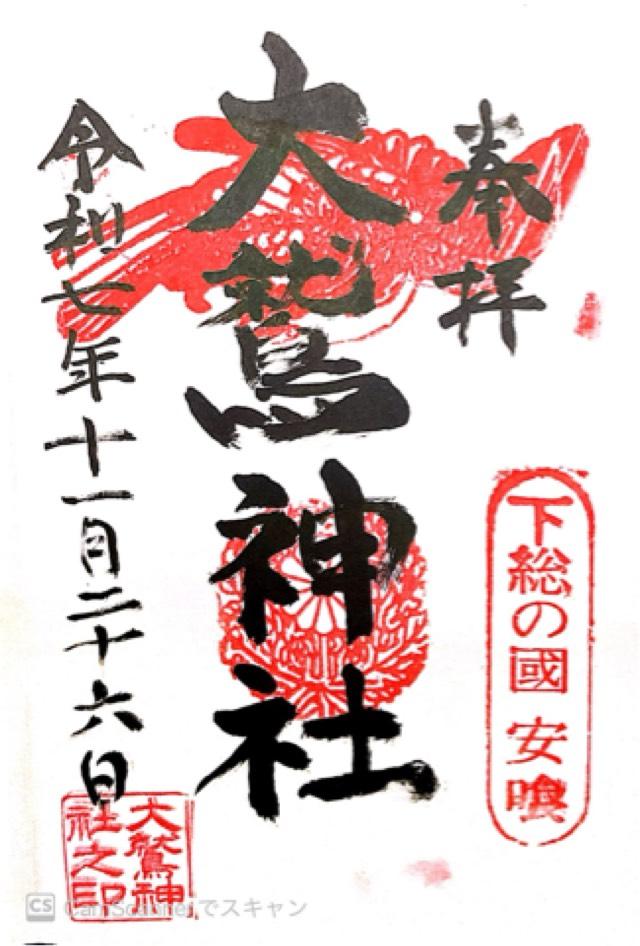 奉拝
下総の國 安喰
大鷲神社
令和七年十一月二十六日
大鷲神
社之印
CS CamScannerでスキャン